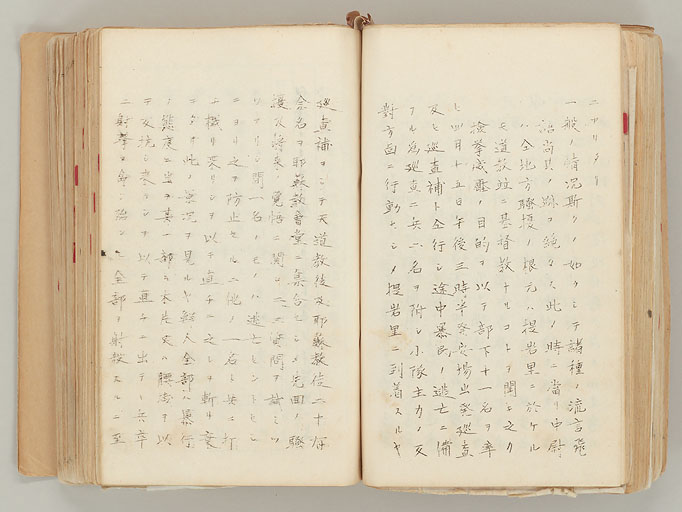 ニアリタリ
一般ノ情況斯クノ如クシテ諸種ノ流言飛
語尚其ノ跡ヲ絶タス此ノ時ニ當リ中尉
ハ全地方騒擾ノ根元ハ提岩里ニ於ケル
天道教並ニ基督教ナルコトヲ聞キ之カ
検挙威壓ノ目的ヲ以テ部下十一名ヲ率
ヒ四月十五日午後三時半發安場出発巡査
及ヒ巡査補ト仝行シ途中暴民ノ逃亡ニ備
フル為巡査ニ兵二名ヲ附シ小隊主力ノ反
對方面ニ行動セシメ提岩里ニ到着スルヤ
巡査補ヲシテ天道教徒及耶蘇教徒二十
余名ヲ耶蘇教會堂ニ集合セシメ先回ノ騒
擾及将来ノ覚悟ニ関シ二三審問ヲ試ミツ
ツアリシ間一名ノモノハ逃亡セントセシ
ニヨリ之ヲ防止セルニ他ノ一名ト共ニ打
ナ掛リ来リシヲ以テ直チニ之ヲ斬リ棄
テタリ此ノ景況ヲ見ルヤ鮮人全部ハ暴行
ノ態度ニ出テ其一部ハ木片又ハ腰掛ヲ以
テ反抗シ来リシヲ以テ直チニ出テテ兵卒
ニ射撃ヲ命シ殆ント全部ヲ射殺スルニ至